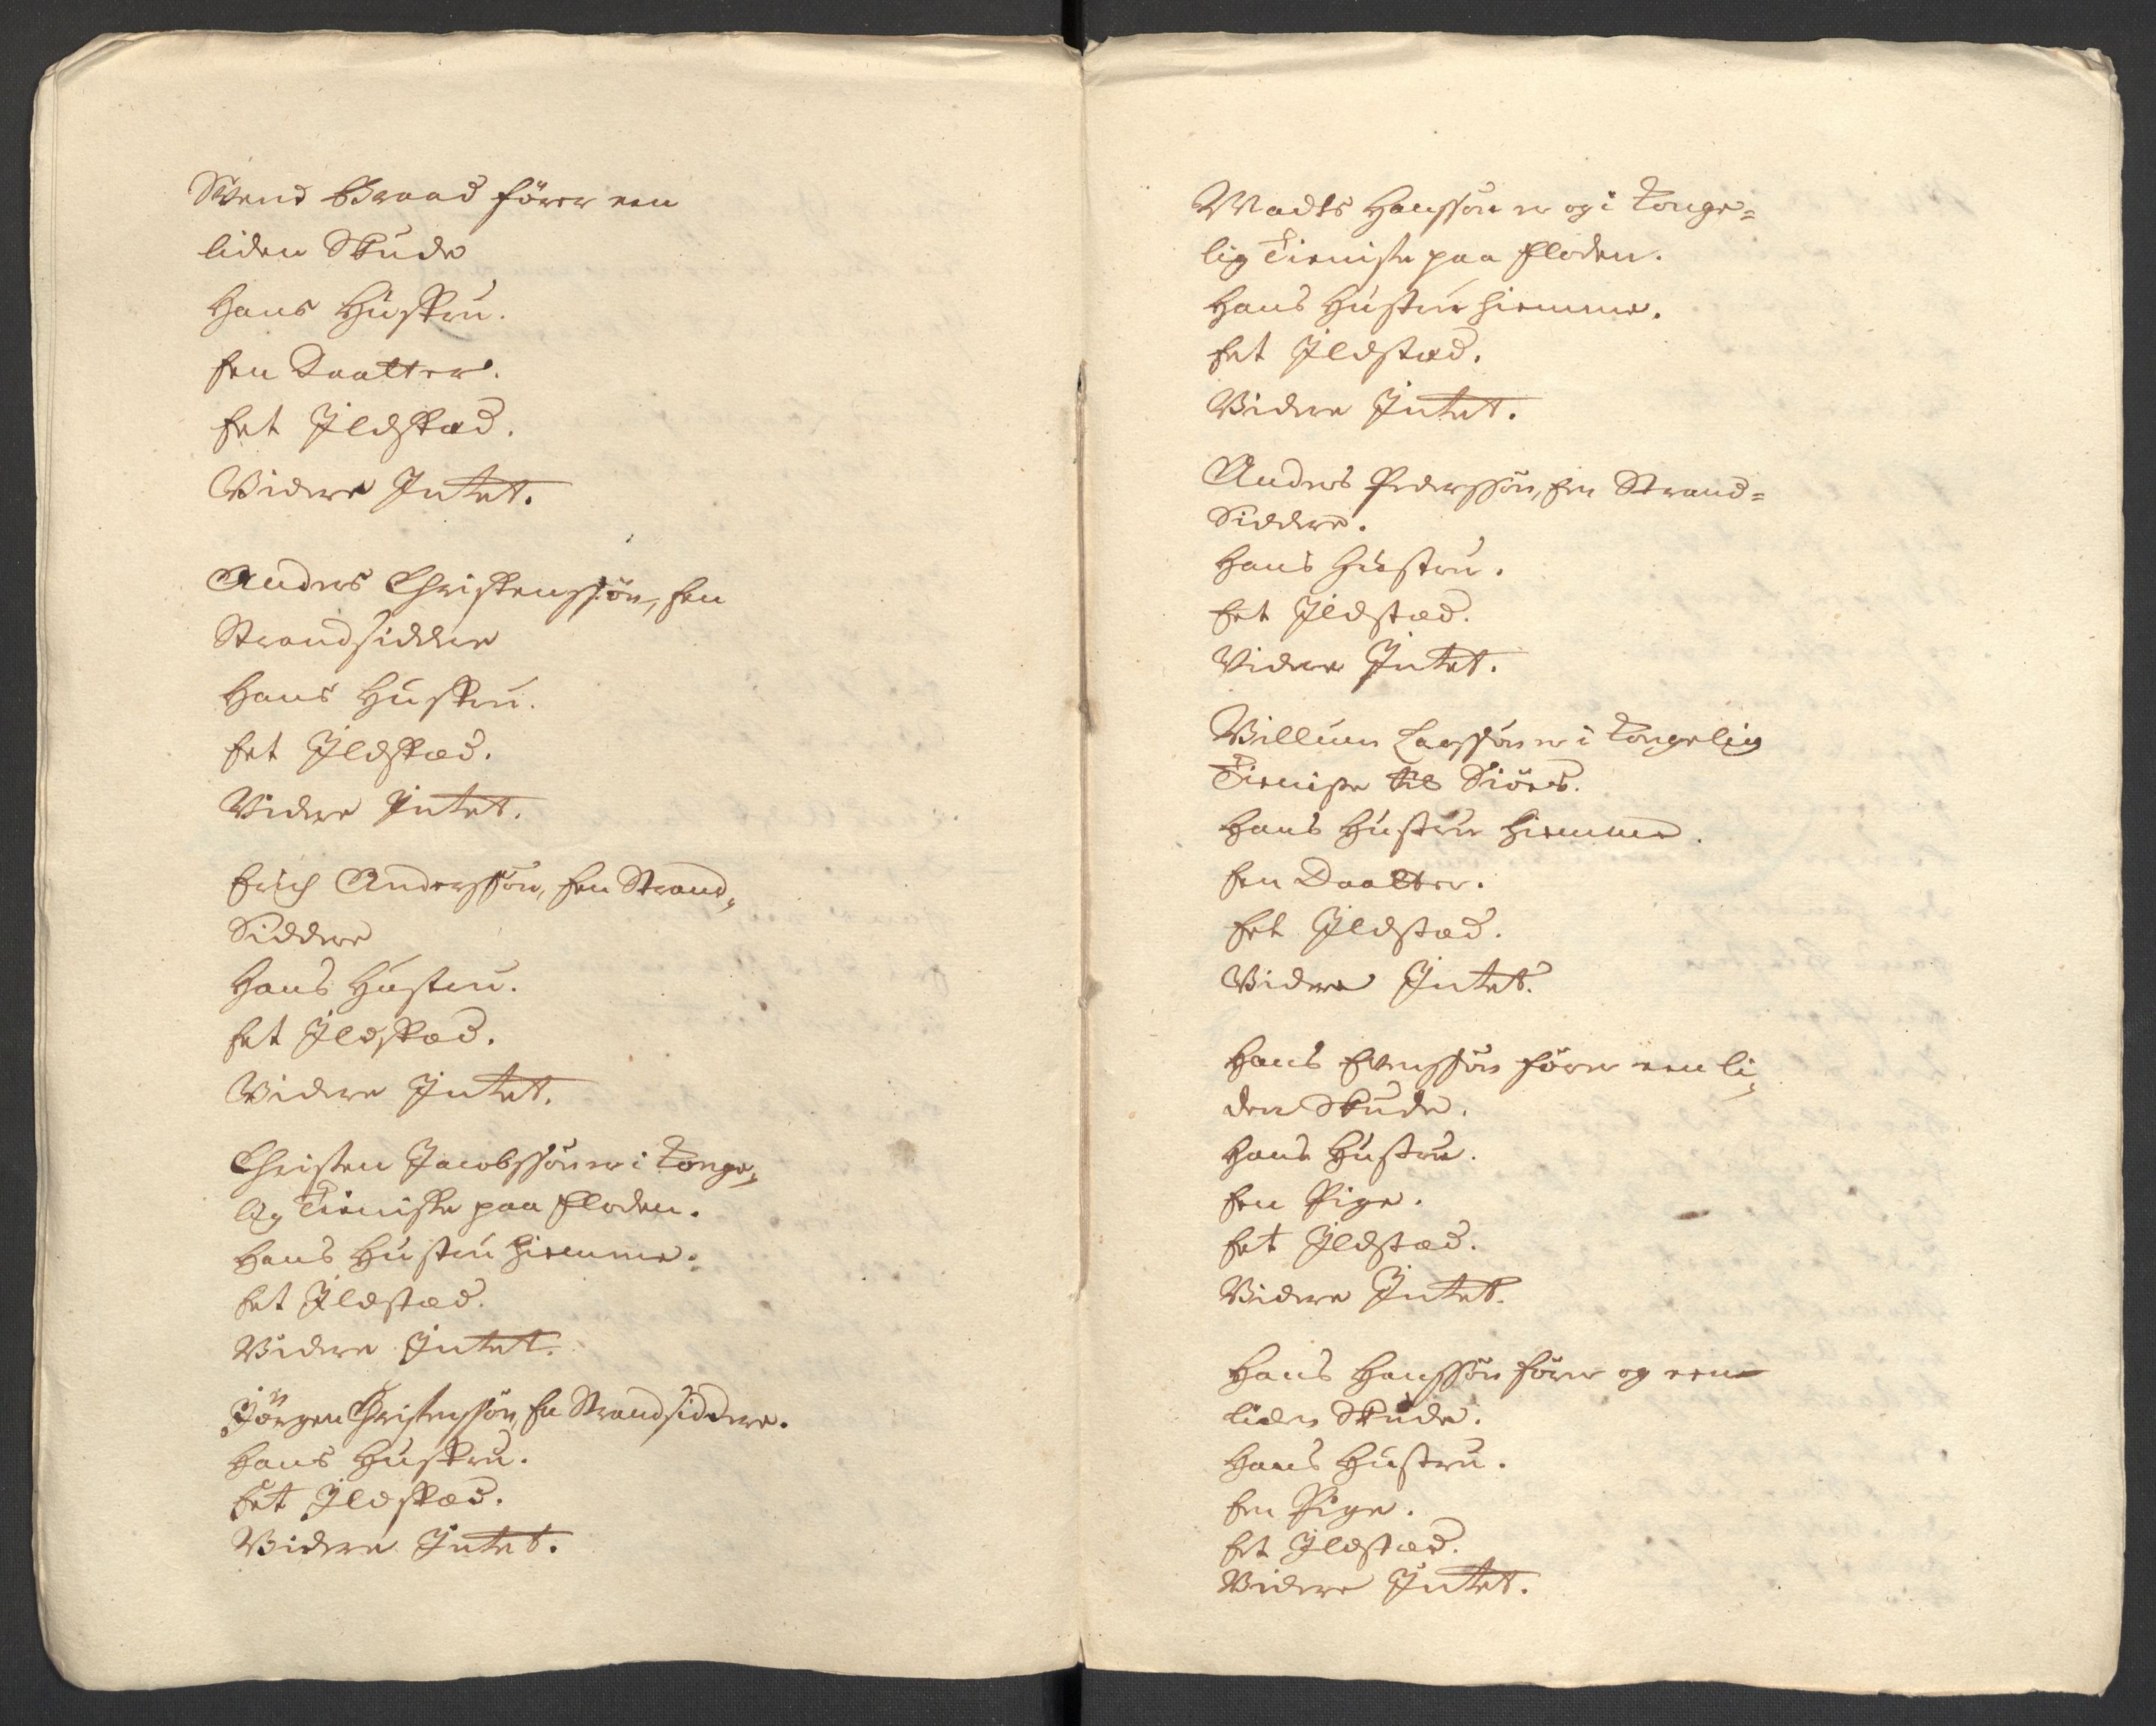 Svend Braad förer een
liden Skude
Hans Hustru.
Een Daatter.
Eet Ildstæd.
Videre Intet.
Anders Christenssön, Een
Strandsidder
Hans Hustru.
Eet Ildstæd.
Videre Intet.
Erich Anderssön, Een Strand„
Siddere
Hans Hustru.
Eet Ildstæd.
Videre Intet.
Christen Jacobssön er i Konge„
lig Tieniste paa Floden.
Hans Hustru hiemme.
Eet Ildstæd.
Videre Intet.
Jörgen Christenssön, En Strandsiddere.
Hans Hustru.
Eet Ildstæd.
Videre Intet.
Madts Hanssön er og i Konge=
lig Tieniste paa Floden.
Hans Hustru hiemme.
Eet Ildstæd.
Videre Intet.
Anders Pederssön, Een Strand=
Siddere.
Hans Hustru.
Eet Ildstæd.
Videre Intet.
Villum Larssön er i Kongelig
Tieniste til Siöes.
Hans Hustru hiemme.
Een Daatter.
Eet Ildstæd.
Videre Intet.
Hans Evenssön förer een li„
den Skude.
Hans Hustru.
Een Pige.
Eet Ildstæd.
Videre Intet.
Hans Hanssön förer og een
liden Skude.
Hans Hustru.
Een Pige.
Eet Ildstæd.
Videre Intet.